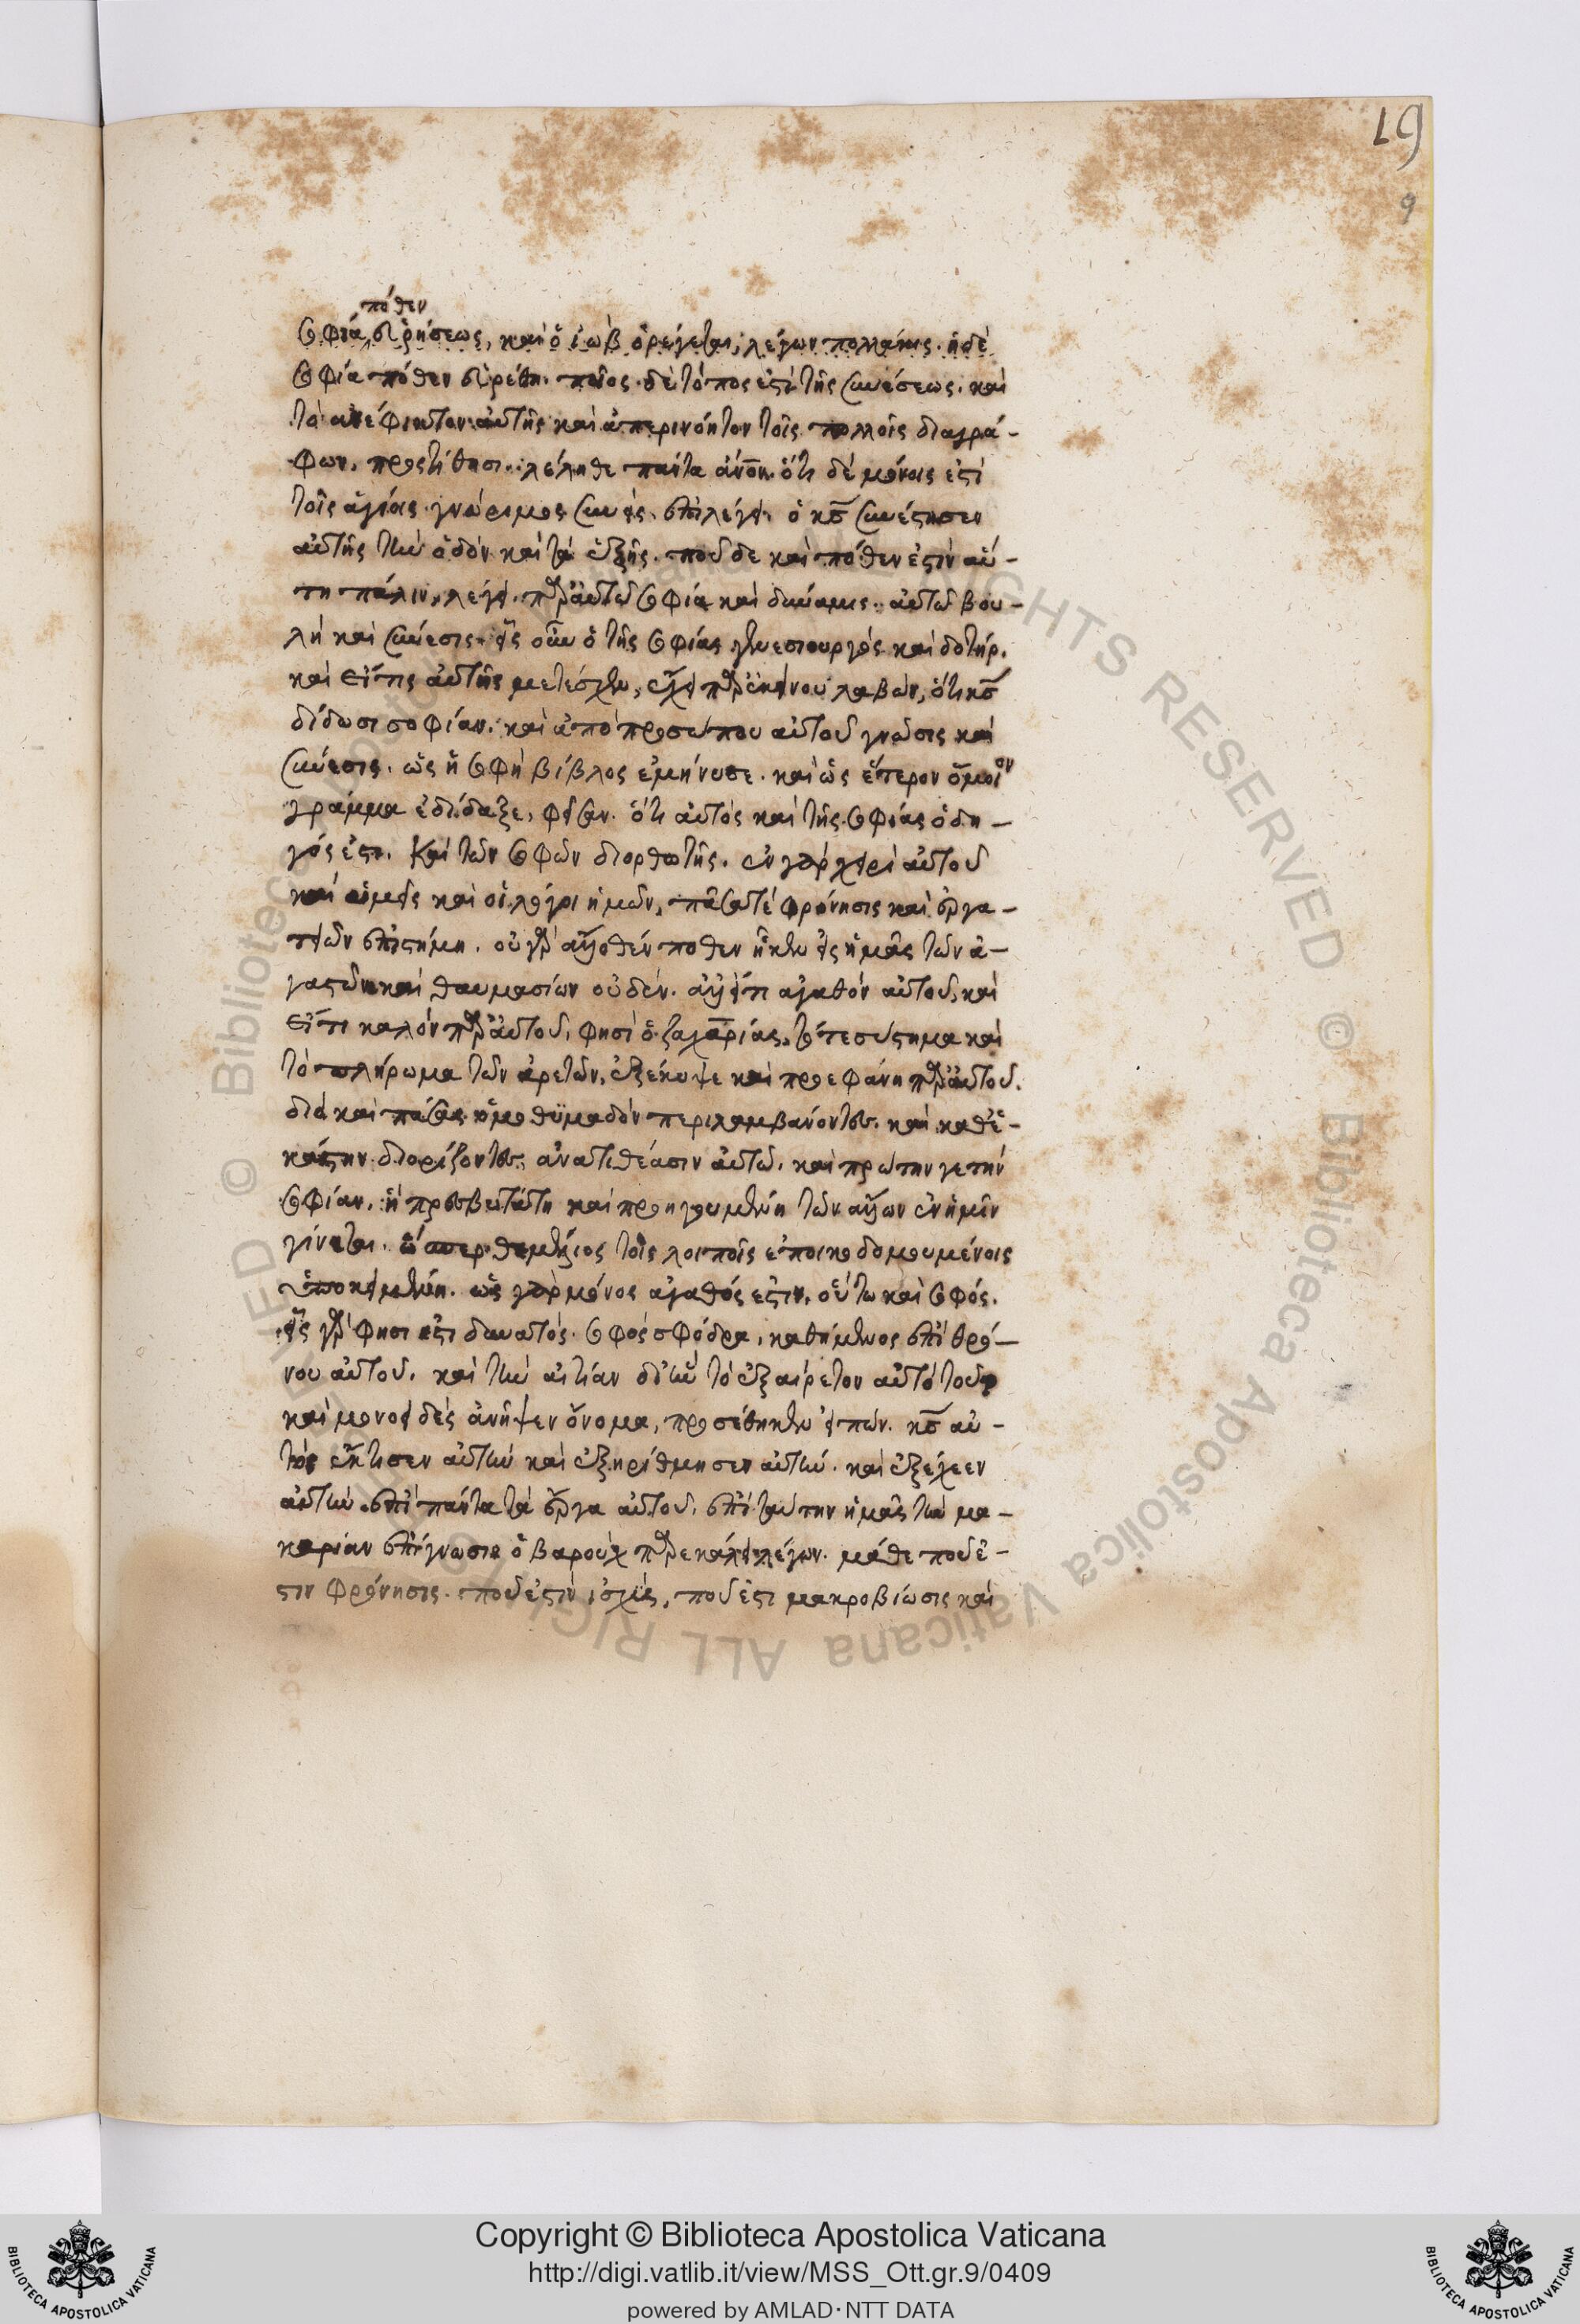 19
9
πόθεν
σοφία εὑρήσεως, καὶ ὁ ἰὼβ ὀρέγεται, λέγων πολλάκις. ἡ δὲ
σοφία πόθεν εὑρέθη. ποῖος δὲ τόπος ἐστὶ τῆς συνέσεως. καὶ
τὸ ἀνέφικτον αὐτῆς καὶ ἀπερινόητον τοῖς πολλοῖς διαγρά-
φων, προστίθησι. λέληθε πάντα ἄνον. ὅτι δὲ μόνοις ἐστὶ
τοῖς ἁγίοις γνώριμος συνεὶς ἐπιλέγει. ὁ κς συνέστησεν
αὐτῆς τὴν ὁδὸν καὶ τὰ ἑξῆς. ποῦ δε καὶ πόθεν ἐστὶν αὕ-
τη πάλιν, λέγει. παρ' αὐτῶ σοφία καὶ δύναμις. αὐτῶ βου-
λὴ καὶ σύνεσις. εἷς οὖν ὁ τῆς σοφίας γενεσιουργὸς καὶ δοτήρ.
καὶ εἴ τις αὐτῆς μετέσχεν, ἔχει παρ' ἐκείνου λαβών, ὅτι κς
δίδωσι σοφίαν. καὶ ἀπὸ προσώπου αὐτοῦ γνῶσις καὶ
σύνεσις. ὡς ἡ σοφὴ βίβλος ἐμήνυσε. καὶ ὡς ἕτερον ὅμοιον
γράμμα ἐδίδαξε, φῆσαν. ὅτι αὐτὸς καὶ τῆς σοφίας ὁδη-
γός ἐστι. καὶ τῶν σοφῶν διορθωτής. ἐν γὰρ χειρὶ αὐτοῦ
καὶ ἡμεῖς καὶ οἱ λόγοι ἡμῶν, πᾶσά τε φρόνησις καὶ ἐργα-
τειῶν ἐπιστήμη. οὐ γὰρ ἄλλοθέν ποθεν ἧκεν εἰς ἡμᾶς τῶν ἀ-
γαστῶν καὶ θαυμασίων οὐδέν. ἀλλ' εἴ τι ἀγαθὸν αὐτοῦ, καὶ
εἴ τι καλὸν παρ' αὐτοῦ, φησὶ ὁ ζαχαρίας. τό τε σύστημα καὶ
τὸ πλήρωμα τῶν ἀρετῶν, ἐξέκυψε καὶ προεφάνη παρ' αὐτοῦ.
διὸ καὶ πάσας ὁμοθϋμαδὸν περιλαμβάνοντες. καὶ καθ' ἑ-
κάστην διορίζοντες, ἀνατιθέασιν αὐτῶ. καὶ πρώτην γε τὴν
σοφίαν. ἡ πρεσβυτάτη καὶ προηγουμένη τῶν ἄλλων ἐν ἡμῖν
γίνεται. ὥσπερ θεμέλιος τοῖς λοιποῖς ἐποικοδομουμένοις
ὑποκειμένη. ὡς γὰρ μόνος ἀγαθός ἐστιν, οὕτω καὶ σοφός.
εἷς γάρ φησι ἐστι δυνατός. σοφὸς σφόδρα, καθήμενος ἐπὶ θρό-
νου αὐτοῦ. καὶ τὴν αἰτίαν δι' ἣν τὸ ἐξαίρετον αὐτὸ τοῦτο
καὶ μονοειδὲς ἀνῆψεν ὄνομα, προσέθηκεν εἰπών. κς αὐ-
τὸς ἔκτισεν αὐτὴν καὶ ἐξηρίθμησεν αὐτήν. καὶ ἐξέχεεν
αὐτὴν ἐπὶ πάντα τὰ ἔργα αὐτοῦ. ἐπὶ ταύτην ἡμᾶς τὴν μα-
καρίαν ἐπίγνωσιν ὁ βαροὺχ παρεκάλει λέγων. μάθε ποῦ ἐ-
στιν φρόνησις. ποῦ ἐστὶν ἰσχύς, ποῦ ἐστι μακροβίωσις καὶ
Copyright © Biblioteca Apostolica Vaticana
http://digi.vatlib.it/view/MSS_Ott.gr.9/0409
powered by AMLAD·NTT DATA
BIBLIOTECA APOSTOLICA VATICANA
BIBLIOTECA APOSTOLICA VATICANA
© Biblioteca Apostolica Vaticana ALL RIGHTS RESERVED © Biblioteca Apostolica Vaticana ALL RIGHTS RESERVED